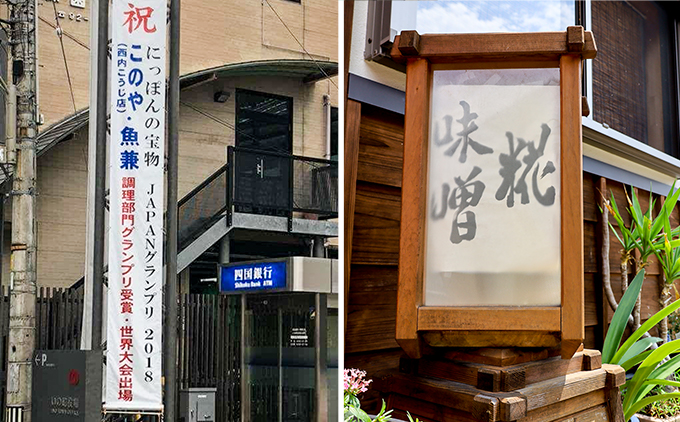 祝
にっぽんの宝物 JAPANグランプリ 2018
このや・魚兼
(西内こうじ店)
調理部門グランプリ受賞・世界大会出場
四国銀行
Shikoku Bank ATM
P
いの町役場
糀
味噌